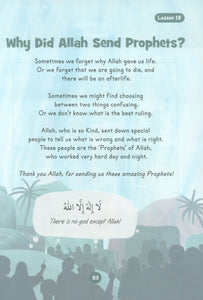 Lesson 18
Why Did Allah Send Prophets?
Sometimes we forget why Allah gave us life.
Or we forget that we are going to die, and
there will be an afterlife.
Sometimes we might find choosing
between two things confusing.
Or we don't know what is the best ruling.
Allah, who is so Kind, sent down special
people to tell us what is wrong and what is right.
These people are the 'Prophets' of Allah,
who worked very hard day and night.
Thank you Allah, for sending us these amazing Prophets!
لَا إِلٰهَ إِلَّا اللّٰهُ
There is no god except Allah!
63